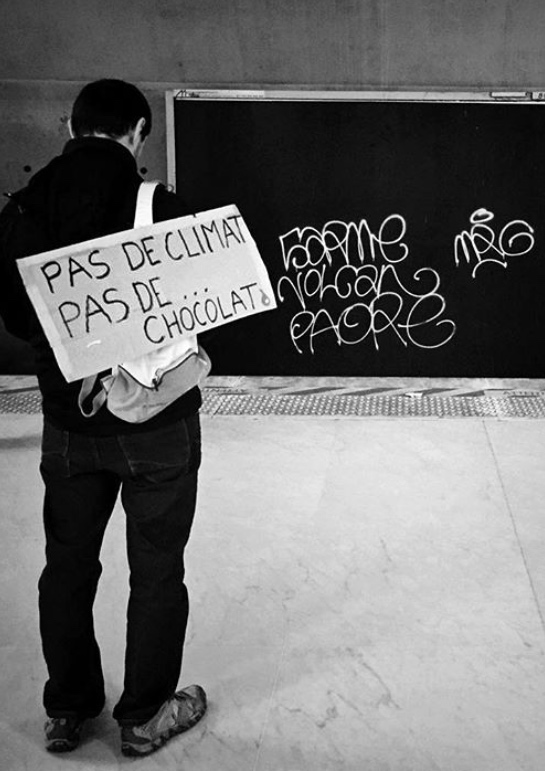 PAS DE CLIMAT
PAS DE ...
CHOCOLAT!
VOLCAN
PADRE